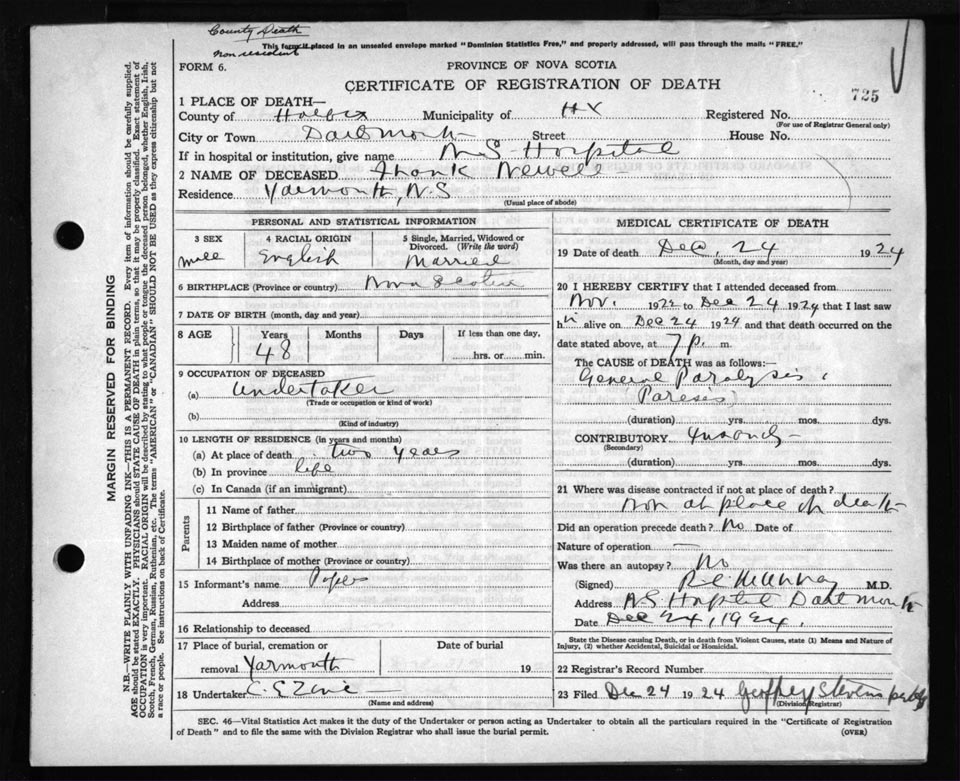 County Death
This form if placed in an unsealed envelope marked "Dominion Statistics Free," and properly addressed, will pass through the mails "FREE."
non resident
FORM 6.
PROVINCE OF NOVA SCOTIA
CERTIFICATE OF REGISTRATION OF DEATH
725
1 PLACE OF DEATH—
County of Halifax Municipality of HX Registered No.
(For use of Registrar General only)
City or Town Dartmouth Street House No.
If in hospital or institution, give name N.S. Hospital
2 NAME OF DECEASED Frank Newell
Residence Yarmouth, N.S
(Usual place of abode)
PERSONAL AND STATISTICAL INFORMATION
3 SEX
male
4 RACIAL ORIGIN
English
5 Single, Married, Widowed or Divorced. (Write the word)
Married
6 BIRTHPLACE (Province or country) Nova Scotia
7 DATE OF BIRTH (month, day and year)
8 AGE Years Months Days If less than one day,
48 hrs. or min.
9 OCCUPATION OF DECEASED
(a) Undertaker
(Trade or occupation or kind of work)
(b)
(Kind of industry)
10 LENGTH OF RESIDENCE (in years and months)
(a) At place of death two years
(b) In province life
(c) In Canada (if an immigrant)
Parents
11 Name of father
12 Birthplace of father (Province or country)
13 Maiden name of mother
14 Birthplace of mother (Province or country)
15 Informant's name
Address
16 Relationship to deceased
17 Place of burial, cremation or Date of burial
removal Yarmouth 19
18 Undertaker
(Name and address)
MEDICAL CERTIFICATE OF DEATH
19 Date of death Dec. 24 1924
(Month, day and year)
20 I HEREBY CERTIFY that I attended deceased from
Nov. 1922 to Dec 24 1924 that I last saw
h alive on Dec 24 1924 and that death occurred on
date stated above, at 7 p. m.
The CAUSE of DEATH was as follows:
General Paralysis
(Paresis)
(duration) yrs. mos. dys.
CONTRIBUTORY
(Secondary)
(duration) yrs. mos. dys.
21 Where was disease contracted if not at place of death?
non at place of death
Did an operation precede death? No Date of
Nature of operation —
Was there an autopsy? No
(Signed) M.D.
Address N.S Hospital Dartmouth
Date Dec 24, 1924.
State the Disease causing Death, or in death from Violent Causes, state (1) Means and Nature of
Injury, (2) whether Accidental, Suicidal or Homicidal.
22 Registrar's Record Number
23 Filed Dec 24 1924 Geoffrey Stevens
(Division Registrar)
SEC. 46—Vital Statistics Act makes it the duty of the Undertaker or person acting as Undertaker to obtain all the particulars required in the "Certificate of Registration
of Death" and to file the same with the Division Registrar who shall issue the burial permit.
(OVER)
MARGIN RESERVED FOR BINDING
N.B.—WRITE PLAINLY WITH UNFADING INK—THIS IS A PERMANENT RECORD. Every item of information should be carefully supplied.
AGE should be stated EXACTLY. PHYSICIANS should STATE CAUSE OF DEATH in plain terms, so that it may be properly classified. Exact statement of
OCCUPATION is very important. RACIAL ORIGIN will be described by stating to what people or tongue the deceased person belonged, whether English, Irish,
Scotch, French, German, Russian, Ruthenian, etc. The terms "AMERICAN" or "CANADIAN" SHOULD NOT BE USED as they express citizenship but not
a race or people. See instructions on back of Certificate.